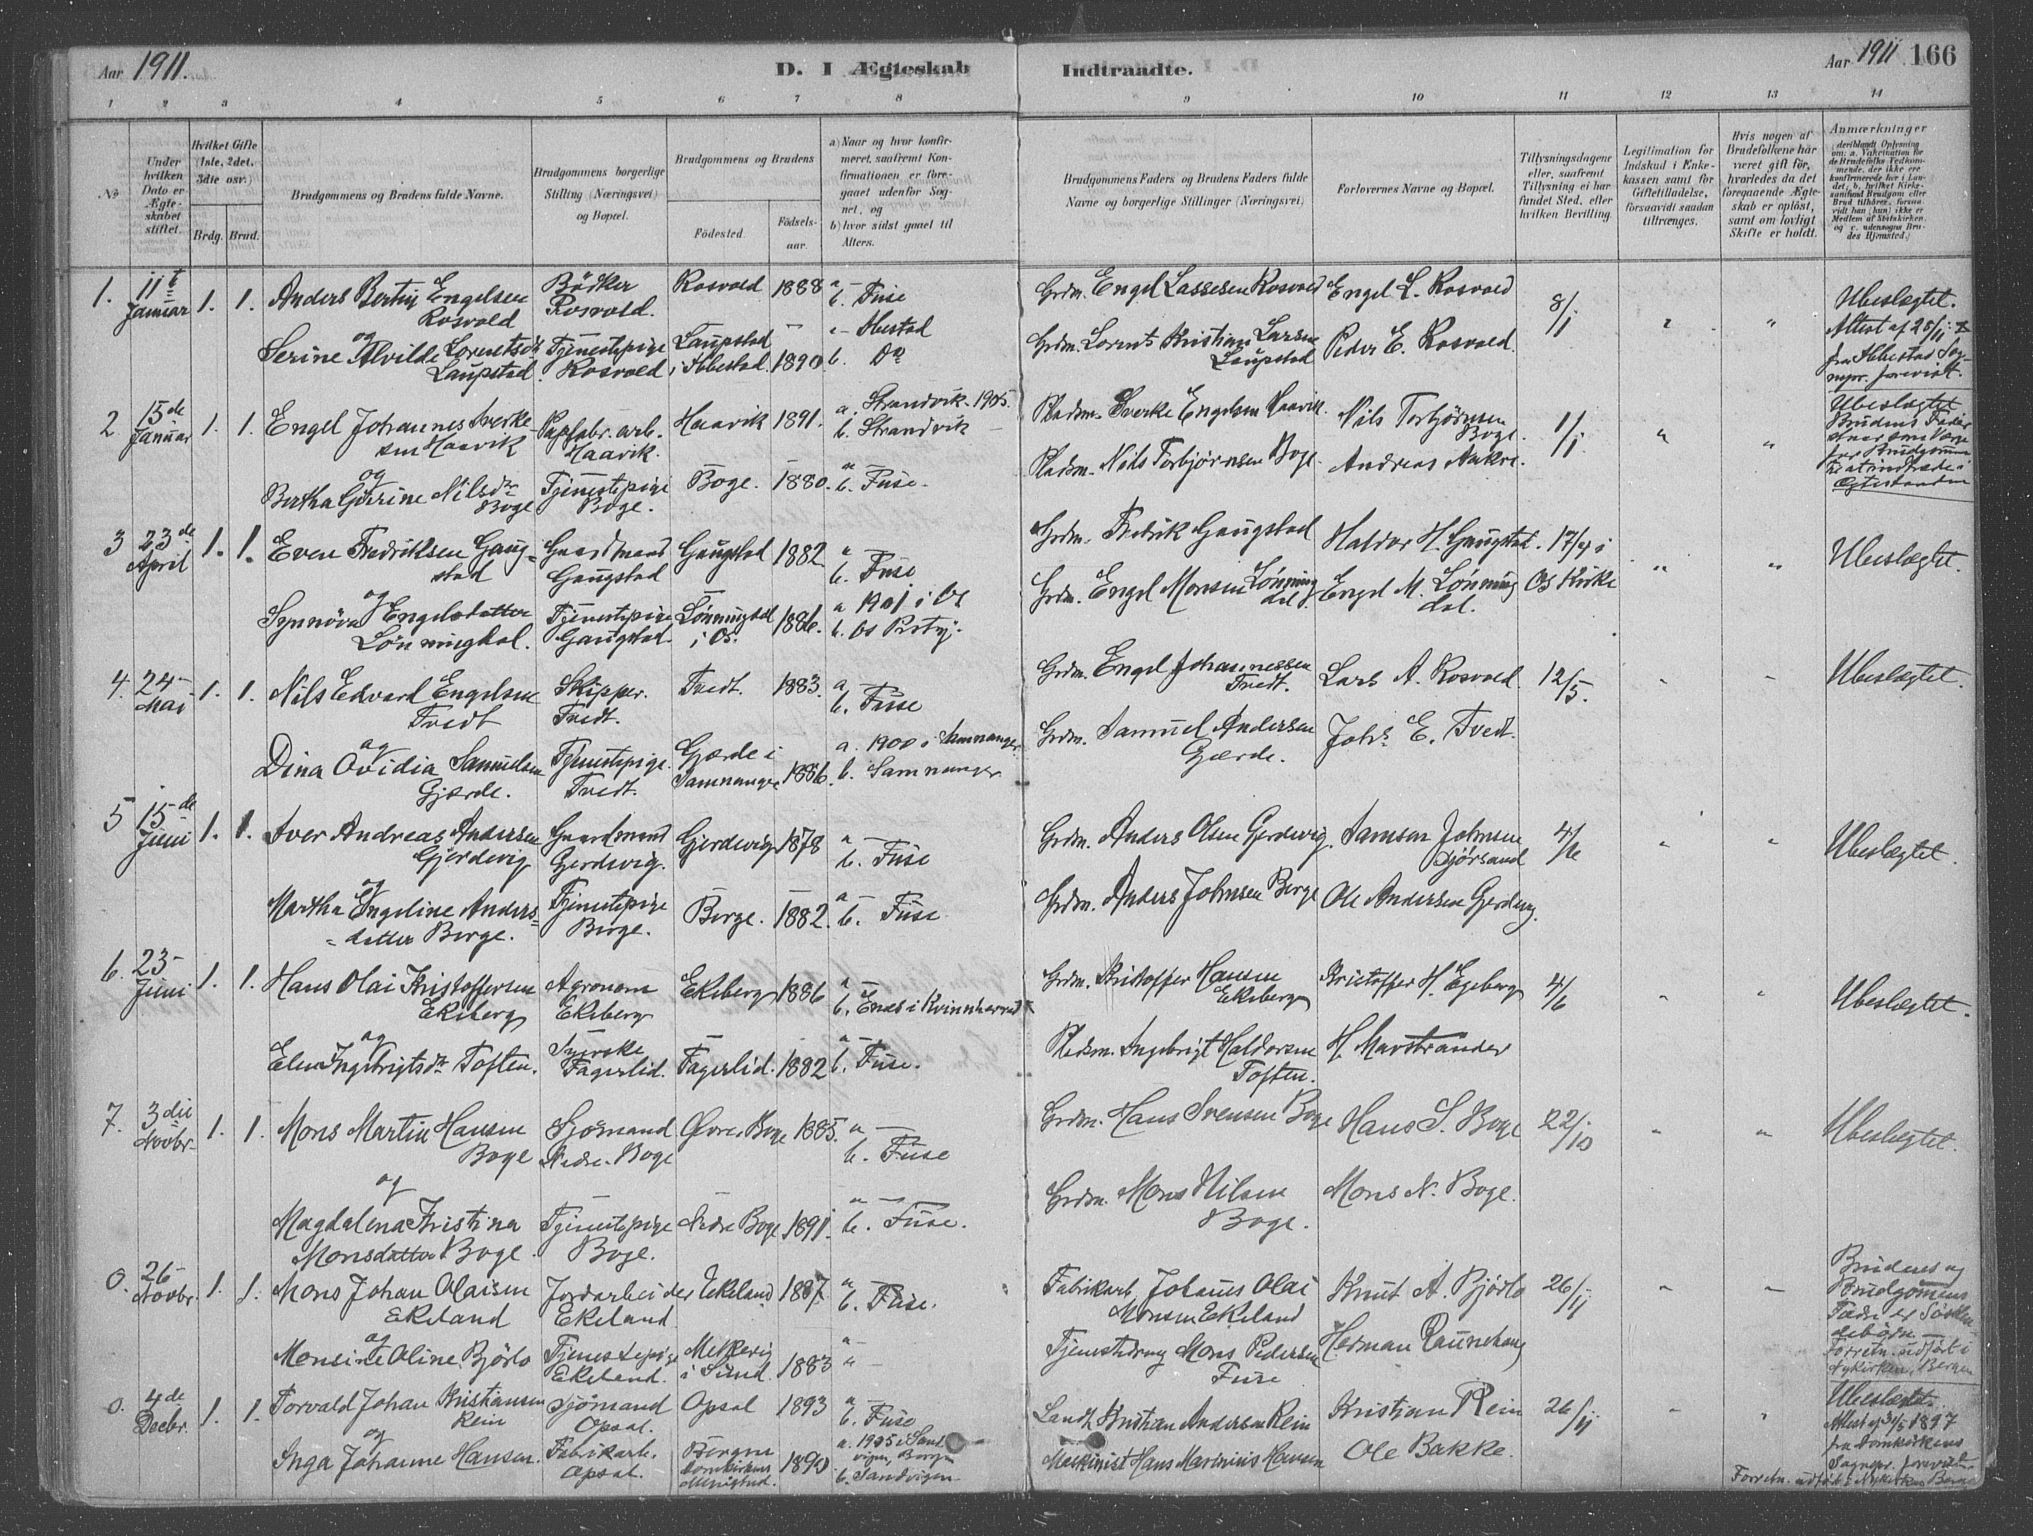 Aar 1911.
D. I Ægteskab
Indtraadte.
Aar 1911 166
1 2 3 4 5 6 7 8 9 10 11 12 13 14
No
Under hvilken Dato er Ægteskabet stiftet.
Hvilket Gifte (1ste, 2det, 3die osv.)
Brdg. Brud.
Brudgommens og Brudens fulde Navne.
Brudgommens borgerlige Stilling (Næringsvei) og Bopæl.
Brudgommens og Brudens
Fødested
Fødsels-aar.
a) Naar og hvor konfirmeret, saafremt Konfirmationen er foregaaet udenfor Sognet, og
b) hvor sidst gaaet til Alters.
Brudgommens Faders og Brudens Faders fulde Navne og borgerlige Stillinger (Næringsvei)
Forlovernes Navne og Bopæl.
Tillysningsdagene eller, saafremt Tillysning ei har fundet Sted, efter hvilken Bevilling.
Legitimation for Indskud i Enkekassen samt for Giftetilladelse, forsaavidt saadan tiltrænges.
Hvis nogen af Brudefolkene har været gift før, hvorledes da det foregaaende Ægteskab er opløst, samt om lovligt Skifte er holdt.
Anmærkninger
1. 11te Januar 1. 1. Anders Bertin Engelsen Rosvold Bödker Rosvold. Rosvold 1888 a – b. Fuse Grdm. Engel Lassesen Rosvold Engel L. Rosvold 8/1 Ubeslægtet.
og Serine Alvilde Lorentsdr Laupstad. Tjenestepige Rosvold Laupstad i Ibbestad. 1890 a – Ibestad b. Do Grdm. Lorents Kristian Larsen Laupstad Peder E. Rosvold. Attest af 25/11 fra Ibbestad Sognepr. forevist.
2 15de Januar 1. 1. Engel Johannes Sverkesen Haavik Papfabr. arb. Haavik. Haavik 1891. a. Strandvik 1905. b. Strandvik Pladsm. Sverke Engelsen Haavik. Nils Torbjørnsen Boge. 1/1 Ubeslægtet
og Bertha Gurine Nilsdr Boge Tjenestepige Boge. Boge. 1880. a – b. Fuse. Pladsm. Nils Torbjørnsen Boge. Andreas Aakre.
3 23de April 1. 1. Even Fredriksen Gaugstad Gaardmand Gaugstad Gaugstad 1882 a – b. Fuse Grdm. Fredrik Gaugstad Haldor H. Gaugstad. 17/4 i Os Kirke Ubeslægtet.
og Synnöva Engelsdatter Lønningdal. Tjenestepige Gaugstad Lønningdal i Os. 1886. a 1901 i Os b. Os Prstgj. Grdm. Engel Monsen Lønningdal. Engel M. Lønningdal.
4. 24– Mai 1. 1. Nils Edvard Engelsen Tvedt Skipper. Tvedt. Tvedt. 1883. a – b. Fuse Grdm. Engel Johannessen Tvedt. Lars A. Rosvold. 12/5. Ubeslægtet.
og Dina Ovidia Samuelsen Gjærde. Tjenestepige. Tvedt. Gjærde i Samnanger 1886. a. 1900 i Samnanger b. Samnanger Grdm. Samuel Andersen Gærde. Johs E. Tvedt.
5 15de Juni 1. 1. Iver Andreas Andersen Gjerdevig Gaardmand Gerdevig. Gjerdevig 1878 a – b. Fuse Grdm. Anders Olsen Gerdevig. Samson Johnsen Bjørsand 4/6 Ubeslægtet.
og Martha Engeline Andersdatter Berge. Tjenestepige Berge. Berge. 1882. a – b. Fuse Grdm. Anders Johnsen Berge Ole Andersen Gerdevig.
6. 23– Juni 1. 1. Hans Olai Kristoffersen Ekeberg Agronom Ekeberg Ekeberg 1886 a – b. Enes i Kvinnherred Grdm. Kristoffer Hansen Ekeberg Kristoffer H. Egeberg 4/6 Ubeslægtet.
og Elen Ingebrigtsdr Toften. Syerske Fagerlid. Fagerlid. 1882 a – b. Fuse. Pladsm. Ingebrigt Haldorsen Toften. H. Marstrander
7. 3die Novbr. 1. 1. Mons Martin Hansen Boge Sjømand Nedre Boge Øvre Boge 1885. a – b. Fuse Grdm. Hans Svensen Boge Hans S. Boge 22/10 Ubeslægtet.
og Magdalena Kristina Monsdatter Boge. Tjenestepige Boge. Nedre Boge 1891. a – b. Fuse. Grdm. Mons Nilsen Boge. Mons N. Boge.
0. 26– Novbr. 1. 1. Mons Johan Olaisen Ekeland Jordarbeider Ekeland Ekeland 1887. a – b. Fuse. Fabrikarb. Johanes Olai Monsen Ekeland Knut A. Bjørlo 26/11 Brudens og Brudgomens Fædre er Söskendebörn. Forretn. udført i Nykirken, Bergen
og Monsine Oline Bjørlo Tjenestepige Ekeland. i Sund. 1883 a – Tjenestedreng Mons Pedersen Fuse Herman Raunehaug
0. 4de Decbr. 1. 1. Torvald Johan Kristiansen Rein Sjömand Opsal. Opsal 1893 a – b. Fuse Landh. Kristian Andersen Rein Kristian Rein 26/11 Ubeslægtet.
og Inga Johanne Hansen. Fabrikarb. Opsal. Bergen Domkirkens Menighed. 1890. a. 1905 i Sandvigen, Bergen b. Sandvigen Maskinist Hans Marinius Hansen Ole Bakke. Attest af 31/5 1897 fra Domkirkens Sognepr. forevist. Forretn. udført i Nykirken Bergen